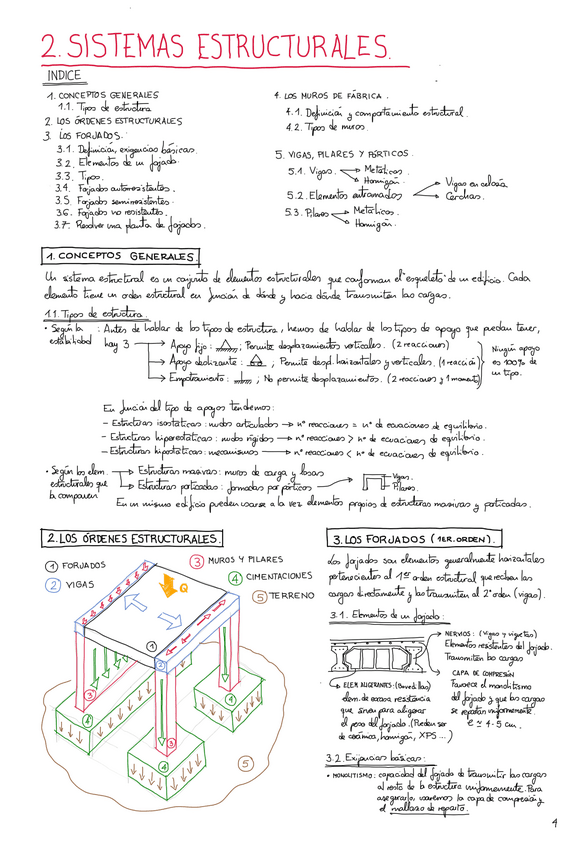 2. SISTEMAS ESTRUCTURALES.
INDICE
1. CONCEPTOS GENERALES
1.1. Tipos de estructura
2. LOS ÓRDENES ESTRUCTURALES
3. LOS FORJADOS.
3.1. Definición, exigencias básicas.
3.2. Elementos de un forjado.
3.3. Tipos.
3.4. Forjados autorresistentes.
3.5. Forjados semirresistentes.
3.6. Forjados no resistentes.
3.7. Resolver una planta de forjados.
4. LOS MUROS DE FÁBRICA.
4.1. Definición y comportamiento estructural.
4.2. Tipos de muros.
5. VIGAS, PILARES Y PÓRTICOS.
5.1. Vigas. Metálicas.
Hormigón.
5.2. Elementos entramados Vigas en celosía
Cerchas.
5.3. Pilares Metálicos.
Hormigón.
1. CONCEPTOS GENERALES.
Un sistema estructural es un conjunto de elementos estructurales que conforman el "esqueleto" de un edificio. Cada
elemento tiene un orden estructural en función de dónde y hacia dónde transmiten las cargas.
1.1. Tipos de estructura.
· Según la estabilidad : Antes de hablar de los tipos de estructura, hemos de hablar de los tipos de apoyo que puedan tener,
hay 3 Apoyo fijo: ; Permite desplazamientos verticales. (2 reacciones)
Apoyo deslizante: ; Permite desp. horizontales y verticales. (1 reacción)
Empotramiento: ; No permite desplazamientos. (2 reacciones y 1 momento)
Ningún apoyo
es 100% de
un tipo.
En función del tipo de apoyos tendremos:
- Estructuras isostáticas: nudos articulados → nº reacciones = nº de ecuaciones de equilibrio.
- Estructuras hiperestáticas: nudos rígidos → nº reacciones > nº de ecuaciones de equilibrio.
- Estructuras hipostáticas: mecanismos → nº reacciones < nº de ecuaciones de equilibrio.
· Según los elem. Estructuras masivas: muros de carga y losas
estructurales que Estructuras porticadas: formadas por pórticos Vigas.
la componen Pilares.
En un mismo edificio pueden usarse a la vez elementos propios de estructuras masivas y porticadas.
2. LOS ÓRDENES ESTRUCTURALES.
1 FORJADOS
2 VIGAS
3 MUROS Y PILARES
4 CIMENTACIONES
5 TERRENO
Q
1
2
3
3
3
4
4
4
5
3. LOS FORJADOS (1ER. ORDEN).
Los forjados son elementos generalmente horizontales
pertenecientes al 1er orden estructural que reciben las
cargas directamente y las transmiten al 2º orden (vigas).
3.1. Elementos de un forjado:
NERVIOS: (Vigas y viguetas)
Elementos resistentes del forjado.
Transmiten las cargas
CAPA DE COMPRESIÓN
Favorece el monolitismo
del forjado y que las cargas
se repartan uniformemente.
e ≃ 4-5 cm.
ELEM ALIGERANTES: (Bovedillas)
elem. de escasa resistencia
que sirven para aligerar
el peso del forjado. (Pueden ser
de cerámica, hormigón, XPS...)
3.2. Exigencias básicas:
• MONOLITISMO: capacidad del forjado de transmitir las cargas
al resto de la estructura uniformemente. Para
asegurarlo, usaremos la capa de compresión y
el mallazo de reparto.
4